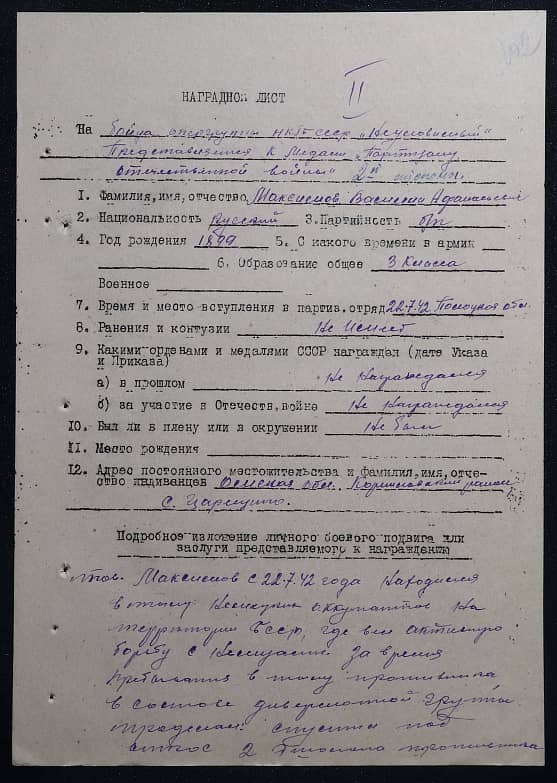 II
НАГРАДНОЙ ЛИСТ
На бойца опергруппы НКГБ СССР „Неуловимый"
Представляемся к медали „Партизану
отечественной войны" 2й степени
1. Фамилия, имя, отчество Максимов Василий Афанасьевич
2. Национальность Русский 3. Партийность б/п
4. Год рождения 1899 5. С какого времени в армии
6. Образование общее 3 класса
Военное
7. Время и место вступления в партиз. отряд 22.7.42 Полоцкая обл.
8. Ранения и контузии Не имеет
9. Какими орденами и медалями СССР награжден (дата Указа
и Приказа)
а) в прошлом Не награждался
б) за участие в Отечеств. войне Не награждался
10. Был ли в плену или в окружении Не был
11. Место рождения
12. Адрес постоянного местожительства и фамилия, имя, отче-
ство иждивенцев Омская обл. район
с. Царицино.
Подробное изложение личного боевого подвига или
заслуги представляемого к награждению
тов. Максимов с 22.7.42 года находился
в тылу немецких оккупантов на
территории БССР, где вел активную
борьбу с немцами за время
пребывания в тылу противника
в составе диверсионной группы
спустил под
откос 2 эшелона противника